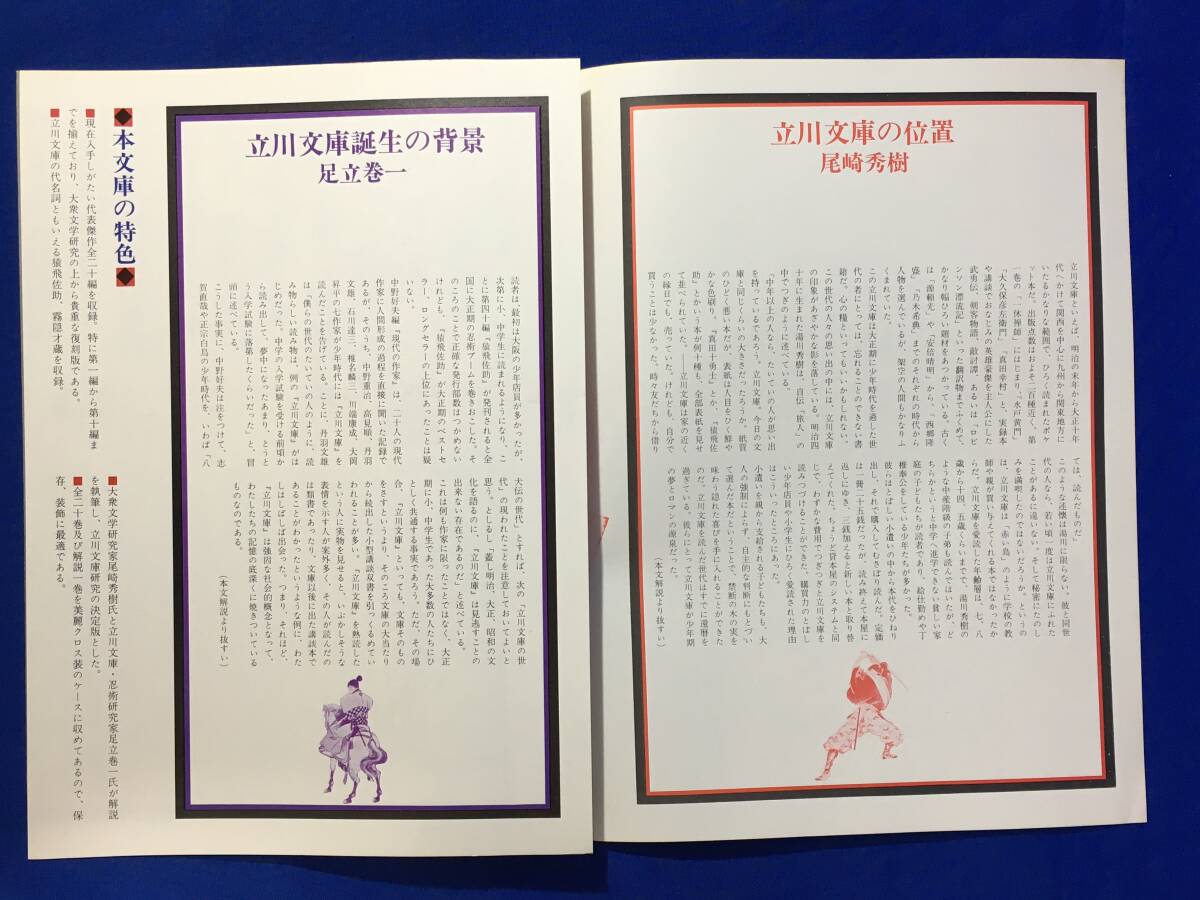 立川文庫の位置
尾崎秀樹
立川文庫といえば、明治の末年から大正十年
代へかけて関西を中心に九州から関東地方に
いたるかなりな範囲で、ひろく読まれたポケ
ット本だ。出版点数はおよそ二百種近く、第
一巻の「一休禅師」にはじまり、「水戸黄門」
「大久保彦左衛門」「真田幸村」と、実録本
や講談でおなじみの英雄豪傑を主人公にした
武勇伝、剣客物語、敵討譚、あるいは「ロビ
ンソン漂流記」といった翻訳物までふくめて、
かなり幅ひろい題材をあつかっている。古く
は「源頼光」や「安倍晴明」から、「西郷隆
盛」「乃木希典」までのそれぞれの時代から
人物を選んでいるが、架空の人間もかなりふ
くまれていた。
この立川文庫は大正期に少年時代を過した世
代の者にとっては、忘れることのできない書
籍だ。心の糧といってもいいかもしれない。
この世代の人々の思い出の中には、立川文庫
の印象があざやかな影を落している。明治四
十年に生まれた湯川秀樹は、自伝「旅人」の
中でつぎのように述べている。
「中年以上の人なら、たいていの人が思い出
を持っているであろう、立川文庫。今日の文
庫と同じくらいの大きさだったろうか。紙質
のひどく悪い本だが、表紙は人目をひく鮮や
かな色刷り。『真田十勇士』とか、『猿飛佐
助』とかいう本が何十種も、全部表紙を見せ
て並べられていた。―立川文庫は家の近く
の縁日でも、売っていた。けれども、自分で
買うことは少なかった。時々友だちから借り
ては、読んだものだ」
このような述懐は湯川に限らない。彼と同世
代の人なら、若い頃一度は立川文庫にふれた
ことがあるに違いない。そして秘密にたのし
みを満喫したのではないだろうか。というの
は、立川文庫は「赤い鳥」のように学校の教
師や親が買い与えてくれる本ではなかったか
らだ。立川文庫を愛読した年齢層は、七、八
歳から十四、五歳くらいまでで、湯川秀樹の
ような中産階級の子弟も読んではいたが、ど
ちらかというと中学へ進学できない貧しい家
庭の子どもたちが読者であり、給仕勤めや丁
稚奉公をしている少年たちが多かった。
彼らはとぼしい小遣いの中から本代をひねり
出し、それで購入してむさぼり読んだ。定価
は一冊二十五銭だったが、読み終えて本屋に
返しにゆき、三銭加えると新しい本と取り替
えてくれた。ちょうど貸本屋のシステムと同
じで、わずかな費用でつぎつぎと立川文庫を
読みつづけることができた。購買力のとぼし
い少年店員や小学生にひろく愛読された理由
はこういったところにもあった。
小遣いを親から支給される子どもたちも、大
人の強制によらず、自主的な判断にもとづい
て選んだ本だということで、禁断の木の実を
味わう隠れた喜びを手に入れることができた
のだ。立川文庫を読んだ世代はすでに還暦を
過ぎている。彼らにとって立川文庫が少年期
の夢とロマンの源泉だった。
(本文解説より抜すい)
立川文庫誕生の背景
足立巻一
読者は、最初は大阪の少年店員が多かったが、
次第に小、中学生に読まれるようになり、こ
とに第四十編『猿飛佐助』が発刊されると全
国に大正期の忍術ブームを巻きおこした。そ
のころのことで正確な発行部数はつかめない
けれども、『猿飛佐助』が大正期のベストセ
ラー、ロングセラーの上位にあったことは疑
いない。
中野好夫編『現代の作家』は、二十人の現代
作家に人間形成の過程を直接に聞いた記録で
あるが、そのうち、中野重治、高見順、丹羽
文雄、石川達三、椎名麟三、川端康成、大岡
昇平の七作家が少年時代には『立川文庫』を
読んだことを告げている。ことに、丹羽文雄
は「僕らの世代のたいていの人のように、読
み物らしい読み物は、例の『立川文庫』がは
じめだった。中学の入学試験を受ける前頃か
ら読み出して、夢中になったあまり、とうと
う入学試験に落第したくらいだった」と、冒
頭に述べている。
こうした事実に、中野好夫は注をつけて、志
賀直哉や正宗白鳥の少年時代を、いわば「八
犬伝の世代」とすれば、次の「立川文庫の世
代」の現われたことを注意しておいてよいと
思う。としるし「蓋し明治、大正、昭和の文
化を語るのに、『立川文庫』は見逃すことの
出来ない存在であるのだ」と述べている。
これは何も作家に限ったことではなく、大正
期に小、中学生であった大多数の人たちにひ
としく共通する事実であろう。ただ、その場
合、「立川文庫」といっても、文庫そのもの
をさすというより、そのころ文庫の大当たり
から続出した小型講談双書を引っくるめてい
われることが多い。『立川文庫』を熱読した
という人に実物を見せると、いぶかしそうな
表情を示す人が案外多く、その人が読んだの
は類書であったり、文庫以後に出た講談本で
あることがわかったというような例に、わた
しはしばしば出会った。つまり、それほど、
『立川文庫』は強固な社会的概念となって、
わたしたちの記憶の底深くに焼きついている
ものなのである。
(本文解説より抜すい)
◆本文庫の特色◆
■現在入手しがたい代表傑作全二十編を収録。特に第一編から第十編ま
でを揃えており、大衆文学研究の上から貴重な復刻版である。
■立川文庫の代名詞ともいえる猿飛佐助、霧隠才蔵を収録。
■大衆文学研究家尾崎秀樹氏と立川文庫・忍術研究家足立巻一氏が解説
を執筆し、立川文庫研究の決定版とした。
■全二十巻及び解説一巻を美麗クロス装のケースに収めてあるので、保
存、装飾に最適である。